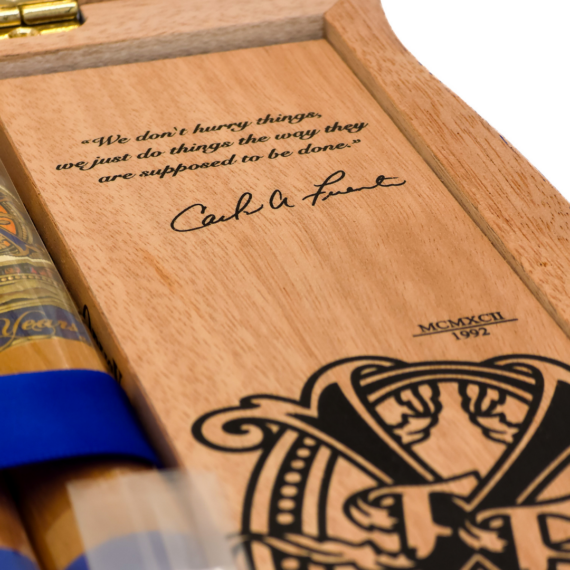 “We don't hurry things,
we just do things the way they
are supposed to be done.”
Carlos A Fuente
MCMXCII
1992
Years